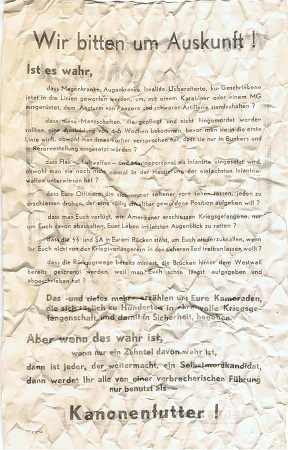 Wir bitten um Auskunft!
Ist es wahr,
dass Magenkranke, Augenkranke, Invalide, Ueberalterte, ku-Geschriebene
jetzt in die Linien geworfen werden, um, mit einem Karabiner oder einem MG
ausgerüstet, dem Ansturm von Panzern und schwerer Artillerie standzuhalten?
dass diese Mannschaften, die gepflegt und nicht hingemordet werden
sollten, eine Ausbildung von 4-6 Wochen bekommen bevor man sie in die erste
Linie wirft, obwohl man ihnen vorher versprochen hat, dass sie nur in Bunkern und
Reservestellung eingesetzt würden?
dass Flak-, Luftwaffen- und als Infanterie eingesetzt wird,
obwohl man sie noch nicht einmal in der Hantierung der einfachsten Infanterie-
waffen unterwiesen hat?
dass Eure Offiziere, die sich immer seltener vorn sehen lassen, jeden zu
erschiessen drohen, der eine völlig unhaltbar gewordene Position aufgeben will?
dass man Euch vorlügt, wir Amerikaner erschiessen Kriegsgefangene, nur
um Euch davon abzuhalten, Euer Leben im letzten Augenblick zu retten?
dass die SS und SA in Eurem Rücken steht, um Euch niederzuknallen, wenn
Ihr Euch nicht von den Kriegsverlängerern in den sicheren Tod treiben lassen wollt?
dass die Rückzugswege bereits miniert, die Brücken hinter dem Westwall
bereits gesprengt werden, weil man Euch schon längst aufgegeben und
abgeschrieben hat?
Das - und vieles mehr - erzählen uns Eure Kameraden,
die sich täglich zu Hunderten in ehrenvolle Kriegsge-
fangenschaft, und damit in Sicherheit, begeben.
Aber wenn das wahr ist,
wenn nur ein Zehntel davon wahr ist,
dann ist jeder, der weitermacht, ein Selbstmordkandidat,
dann werdet Ihr alle von einer verbrecherischen Führung
nur benutzt als
Kanonenfutter!